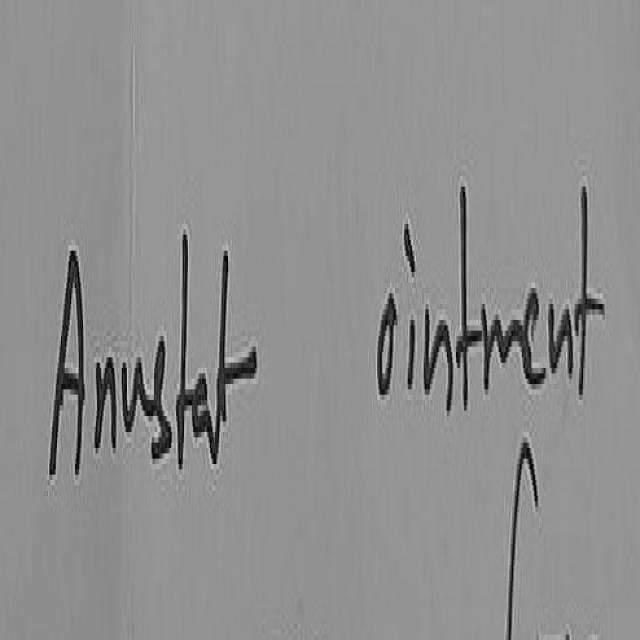 Anustat ointment